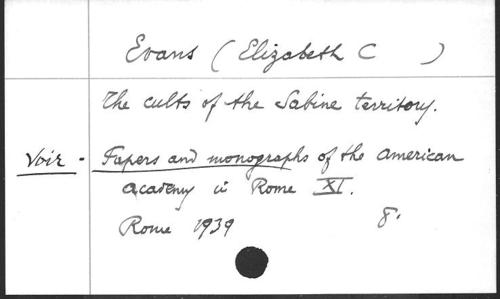 Evans (Elizabeth C )
The cults of the Sabine territory.
Voir - Papers and monographs of the American
Academy in Rome XI.
Rome 1939 8.